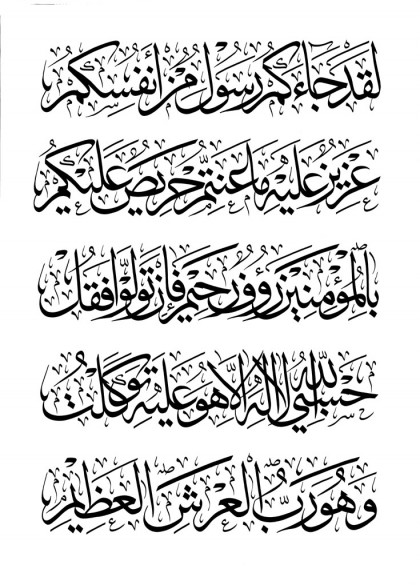 لَقَدْ جَاءَكُمْ رَسُولٌ مِنْ أَنْفُسِكُمْ
عَزِيزٌ عَلَيْهِ مَا عَنِتُّمْ حَرِيصٌ عَلَيْكُمْ
بِالْمُؤْمِنِينَ رَؤُوفٌ رَحِيمٌ فَإِنْ تَوَلَّوْا فَقُلْ
حَسْبِيَ اللَّهُ لَا إِلَهَ إِلَّا هُوَ عَلَيْهِ تَوَكَّلْتُ
وَهُوَ رَبُّ الْعَرْشِ الْعَظِيمِ